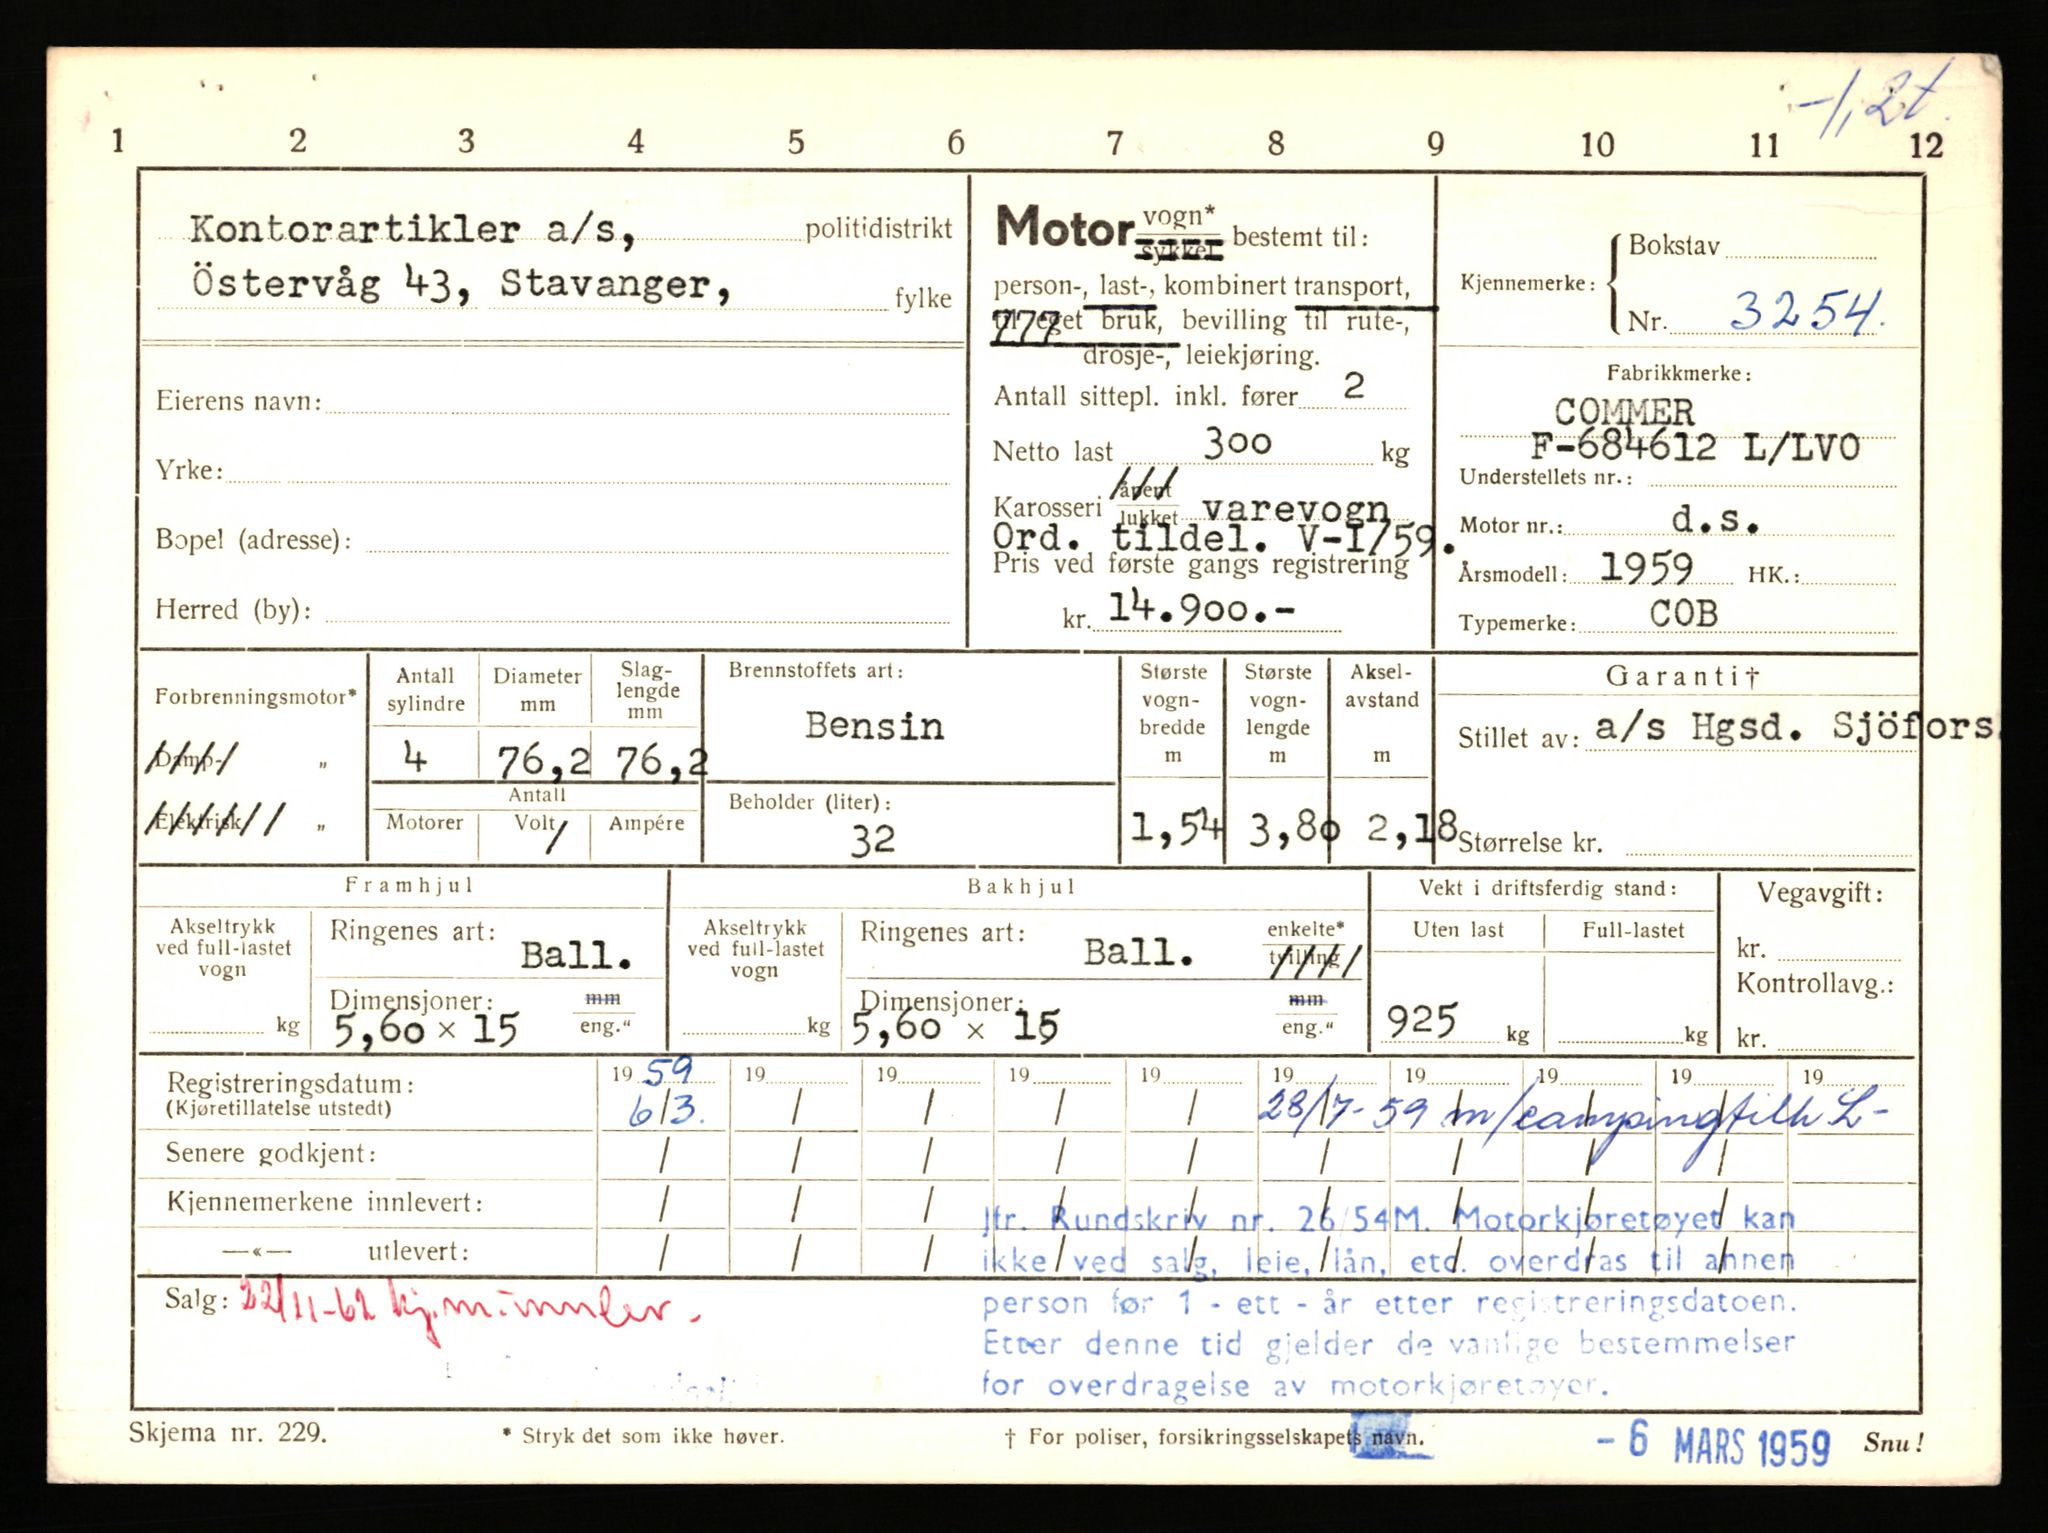 -1,2t.
1 2 3 4 5 6 7 8 9 10 11 12
Kontorartikler a/s, politidistrikt
Östervåg 43, Stavanger, fylke
Eierens navn:
Yrke:
Bopel (adresse):
Herred (by):
Motor vogn* sykkel bestemt til:
person-, last-, kombinert transport,
til eget bruk, bevilling til rute-,
drosje-, leiekjøring.
Antall sittepl. inkl. fører 2
Netto last 300 kg
Karosseri åpent lukket varevogn
Ord. tildel. V-I/59.
Pris ved første gangs registrering
kr. 14.900.-
Kjennemerke: Bokstav
Nr. 3254.
Fabrikkmerke:
COMMER
F-684612 L/LVO
Understellets nr.:
Motor nr.: d.s.
Årsmodell: 1959 HK.:
Typemerke: COB
Forbrenningsmotor*
Damp- „
Elektrisk „
Antall sylindre
4
Diameter mm
76,2
Slag-lengde mm
76,2
Antall
Motorer Volt Ampére
Brennstoffets art:
Bensin
Beholder (liter):
32
Største vogn-bredde m
1,54
Største vogn-lengde m
3,80
Aksel-avstand m
2,18
Garanti†
Stillet av: a/s Hgsd. Sjöfors.
Størrelse kr.
Framhjul
Akseltrykk ved full-lastet vogn
kg
Ringenes art: Ball.
Dimensjoner: mm eng."
5,60 x 15
Bakhjul
Akseltrykk ved full-lastet vogn
kg
Ringenes art: Ball. enkelte* tvilling
Dimensjoner: mm eng."
5,60 x 15
Vekt i driftsferdig stand:
Uten last Full-lastet
925 kg kg
Vegavgift:
kr.
Kontrollavg.:
kr.
Registreringsdatum: 19 59 19 19 19 19 19 19 19 19 19
(Kjøretillatelse utstedt) 6/3. / / / / 28/7-59 m/campingtilh L-
Senere godkjent: / / / / / / / / /
Kjennemerkene innlevert: / / / / / / / / /
—«— utlevert: / / / / / / / / /
Jfr. Rundskriv nr. 26/54M. Motorkjøretøyet kan
ikke ved salg, leie, lån, etc. overdras til annen
person før 1 - ett - år etter registreringsdatoen.
Etter denne tid gjelder de vanlige bestemmelser
for overdragelse av motorkjøretøyer.
Salg: 22/11-62 kj.m. innlev.
Skjema nr. 229. * Stryk det som ikke høver. † For poliser, forsikringsselskapets navn. - 6 MARS 1959 Snu!